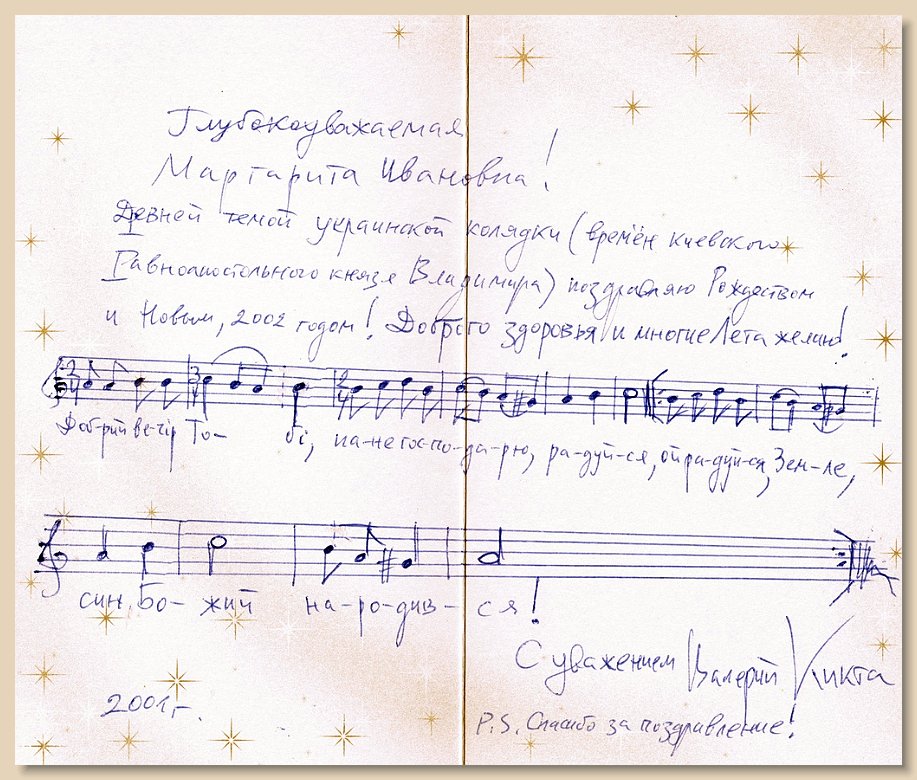 Глубокоуважаемая
Маргарита Ивановна!
Древней темой украинской колядки (времён киевского
Равноапостольного князя Владимира) поздравляю Рождеством
и Новым, 2002 годом! Доброго здоровья и многие Лета желаю!
2/4 3/4 2/4
Доб-рий ве-чір То- бі, па-не гос-по-да-рю, ра-дуй-ся, ой ра-дуй-ся, Зем-ле,
син Бо- жий на-ро-див- ся!
С уважением Валерий Кикта
2001 г.
P.S. Спасибо за поздравление!